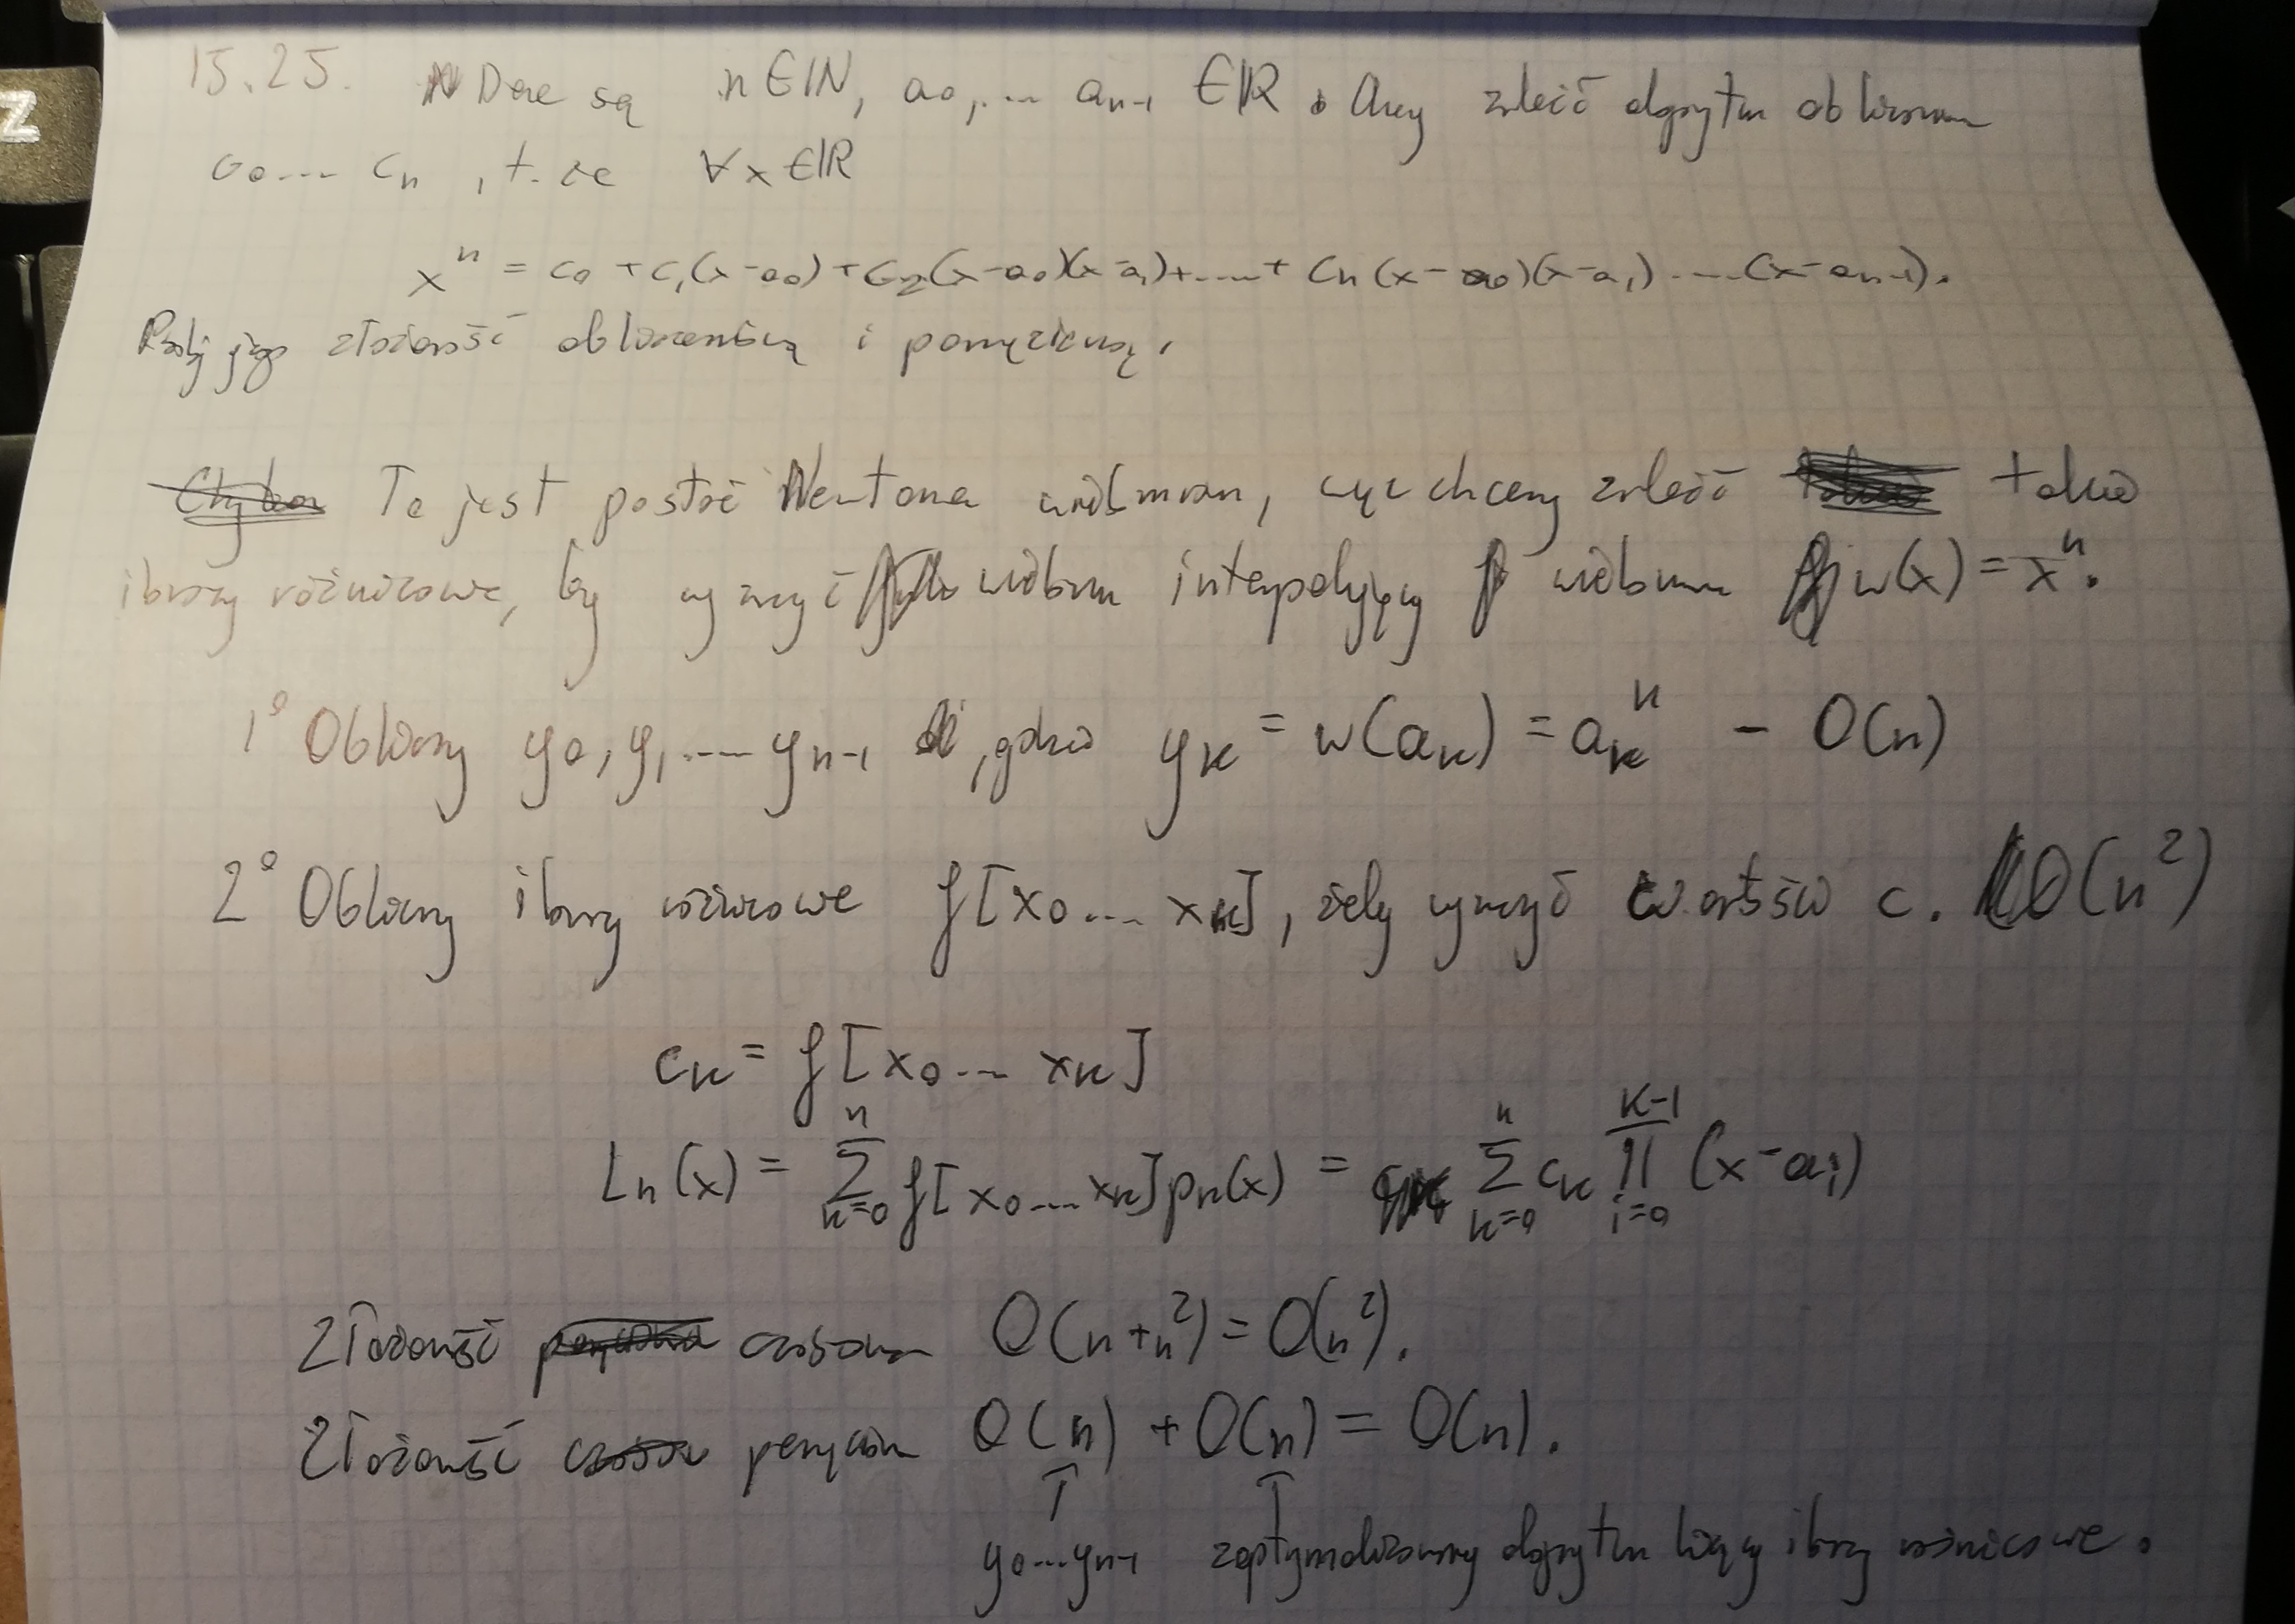 15.25. Dane są n ∈ ℕ, a₀,... aₙ₋₁ ∈ ℝ. Chcemy znaleźć algorytm obliczania
c₀... cₙ, t. że ∀x∈ℝ
xⁿ = c₀ + c₁(x-a₀) + c₂(x-a₀)(x-a₁)+.....+ cₙ(x-a₀)(x-a₁).....(x-aₙ₋₁).
Podaj jego złożoność obliczeniową i pamięciową.
To jest postać Newtona wielomianu, więc chcemy znaleźć takie
ilorazy różnicowe, by wyznaczyć wielomian interpolujący wielomian w(x) = xⁿ.
1° Obliczmy y₀, y₁,.... yₙ₋₁, gdzie yₖ = w(aₖ) = aₖⁿ - O(n)
2° Obliczmy ilorazy różnicowe f[x₀... xₖ], żeby wyznaczyć wartości c. O(n²)
cₖ = f[x₀... xₖ]
Lₙ(x) = ∑ₖ₌₀ⁿ f[x₀... xₖ]pₖ(x) = ∑ₖ₌₀ⁿ cₖ ∏ᵢ₌₀ᵏ⁻¹ (x-aᵢ)
Złożoność czasowa O(n+n²) = O(n²).
Złożoność pamięciowa O(n) + O(n) = O(n).
↑ ↑
y₀...yₙ₋₁ zoptymalizowany algorytm liczący ilorazy różnicowe.